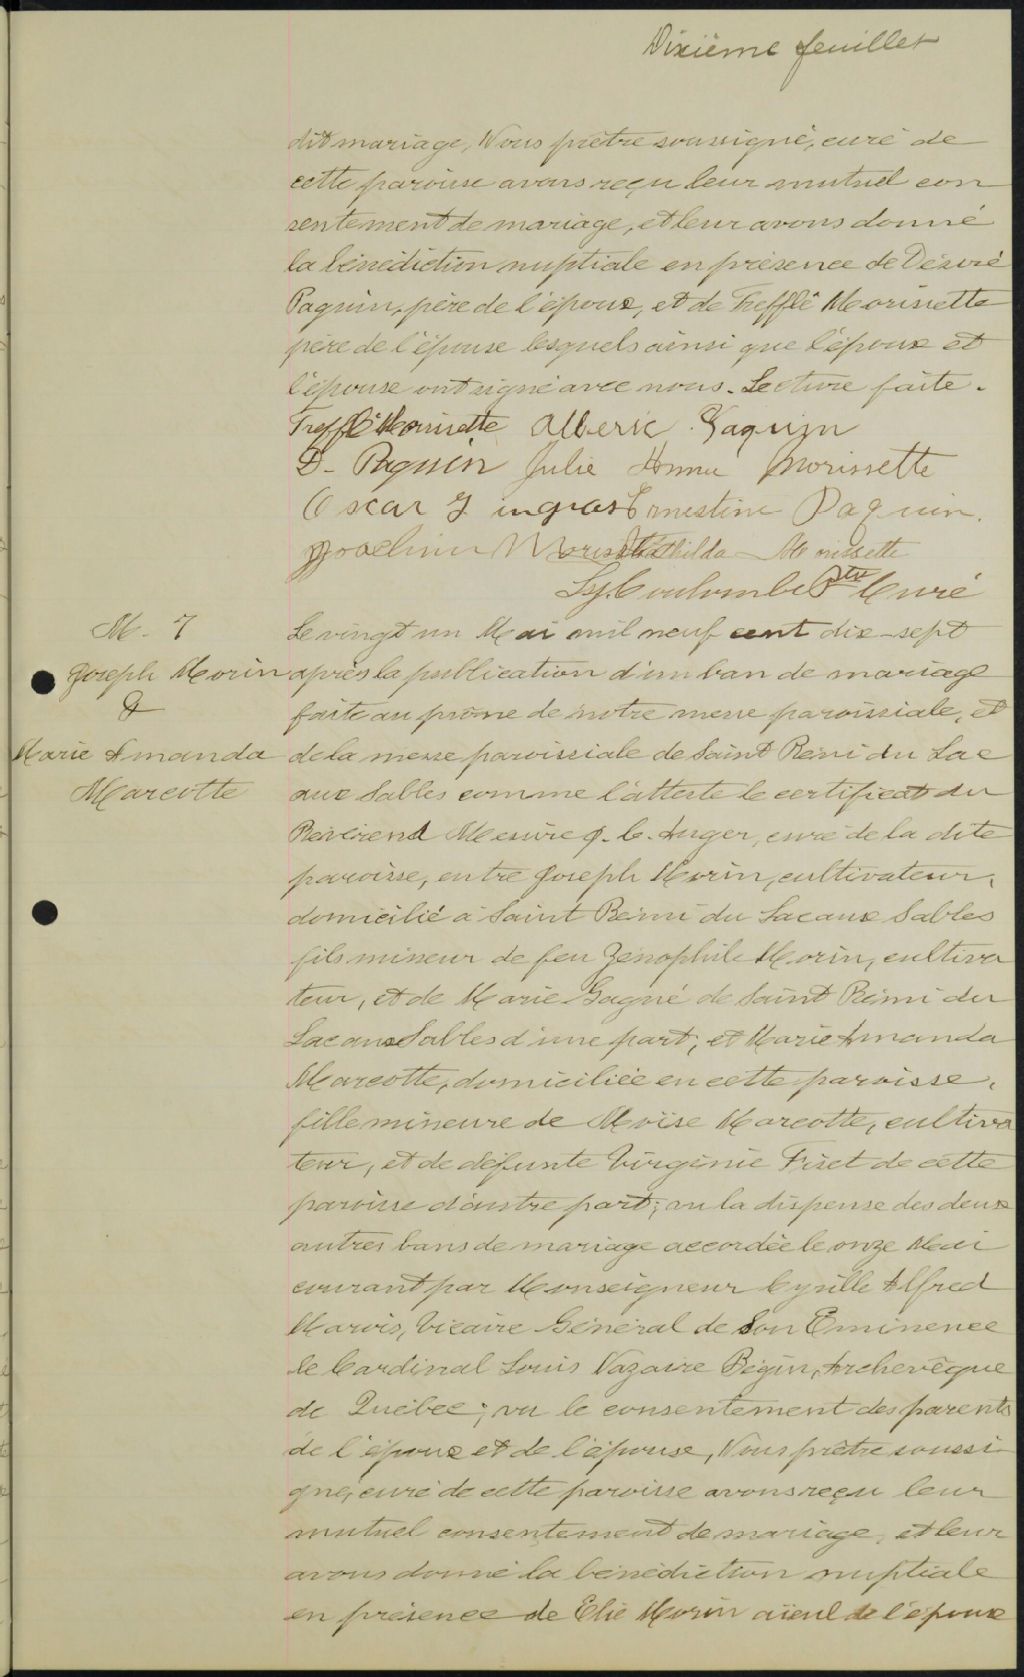 Dixième feuillet
dit mariage, Nous prêtre soussigné, curé de
cette paroisse avons reçu leur mutuel con
sentement de mariage, et leur avons donné
la bénédiction nuptiale en présence de Désiré
Paquin, père de l'époux, et de Trefflé Morissette
père de l'épouse lesquels ainsi que l'époux et
l'épouse ont signé avec nous. Lecture faite.
Trefflé Morissette Alberic Paquin
D. Paquin Julie Anna Morissette
Oscar Gingras Ernestine Paquin.
Joachim Morissette Mathilda Morissette
Coulombe Ptre Curé
M. 7
Joseph Morin
&
Marie Amanda
Marcotte
Le vingt un Mai mil neuf cent dix-sept
après la publication d'un ban de mariage
faite au prône de notre messe paroissiale, et
de la messe paroissiale de Saint Rémi du Lac
aux Sables comme l'atteste le certificat du
Révérend Messire J. C. Auger, curé de la dite
paroisse, entre Joseph Morin, cultivateur,
domicilié à Saint Rémi du Lac aux Sables
fils mineur de feu Zénophile Morin, cultiva
teur, et de Marie Gagné de Saint Rémi du
Lac aux Sables d'une part, et Marie Amanda
Marcotte, domiciliée en cette paroisse,
fille mineure de Moïse Marcotte, cultiva
teur, et de défunte Virginie Fiset de cette
paroisse d'autre part; vu la dispense des deux
autres bans de mariage accordée le onze Mai
courant par Monseigneur Cyrille Alfred
Marois, Vicaire Général de Son Eminence
le Cardinal Louis Nazaire Bégin, Archevêque
de Québec; vu le consentement des parents
de l'époux et de l'épouse, Nous prêtre soussi
gné, curé de cette paroisse avons reçu leur
mutuel consentement de mariage, et leur
avons donné la bénédiction nuptiale
en présence de Elie Morin aïeul de l'époux